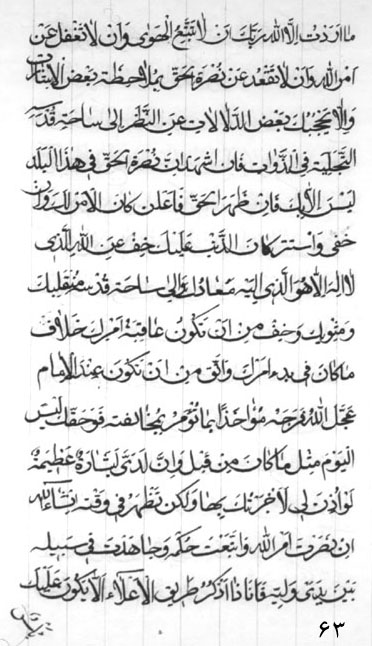 ما اردت الا الله ربك ان لا تتبع الهوی وان لا تغفل عن
امر الله وان لا تقعد عن نصرة الحق بملاحظة بعض الاشارات
والا یحجبك بعض الدلالات عن النظر الی ساحة قدسه
التجلیة فی الذوات فان اشهدت نصرة الحق فی هذا البلد
لیس الا لك فان ظهر الحق فاعلن كان الامر لك وان
خفی واستتر كان الذنب علیك خف عن الله الذی
لا اله الا هو الذی الیه معادك والی ساحة قدسه منقلبك
ومثویك وخف من ان تكون عاقبة امرك خلاف
ما كان فی بدء امرك واتق من ان تكون عند الامام
عجل الله فرجه مؤاخذا بما توهم بمخالفته فوحقك لیس
الیوم مثل ما كان من قبل وان لدی لبشارة عظیمة
لو اذن لی لاخبرتك بها ولكن تظهر فی وقته انشاء الله
ان نصرت امر الله واتبعت حكمه وجاهدت فی سبیله
بین یدی ولیه فانا ذا اذكر طریق الاعلاء الا یكون علیك
۶۳